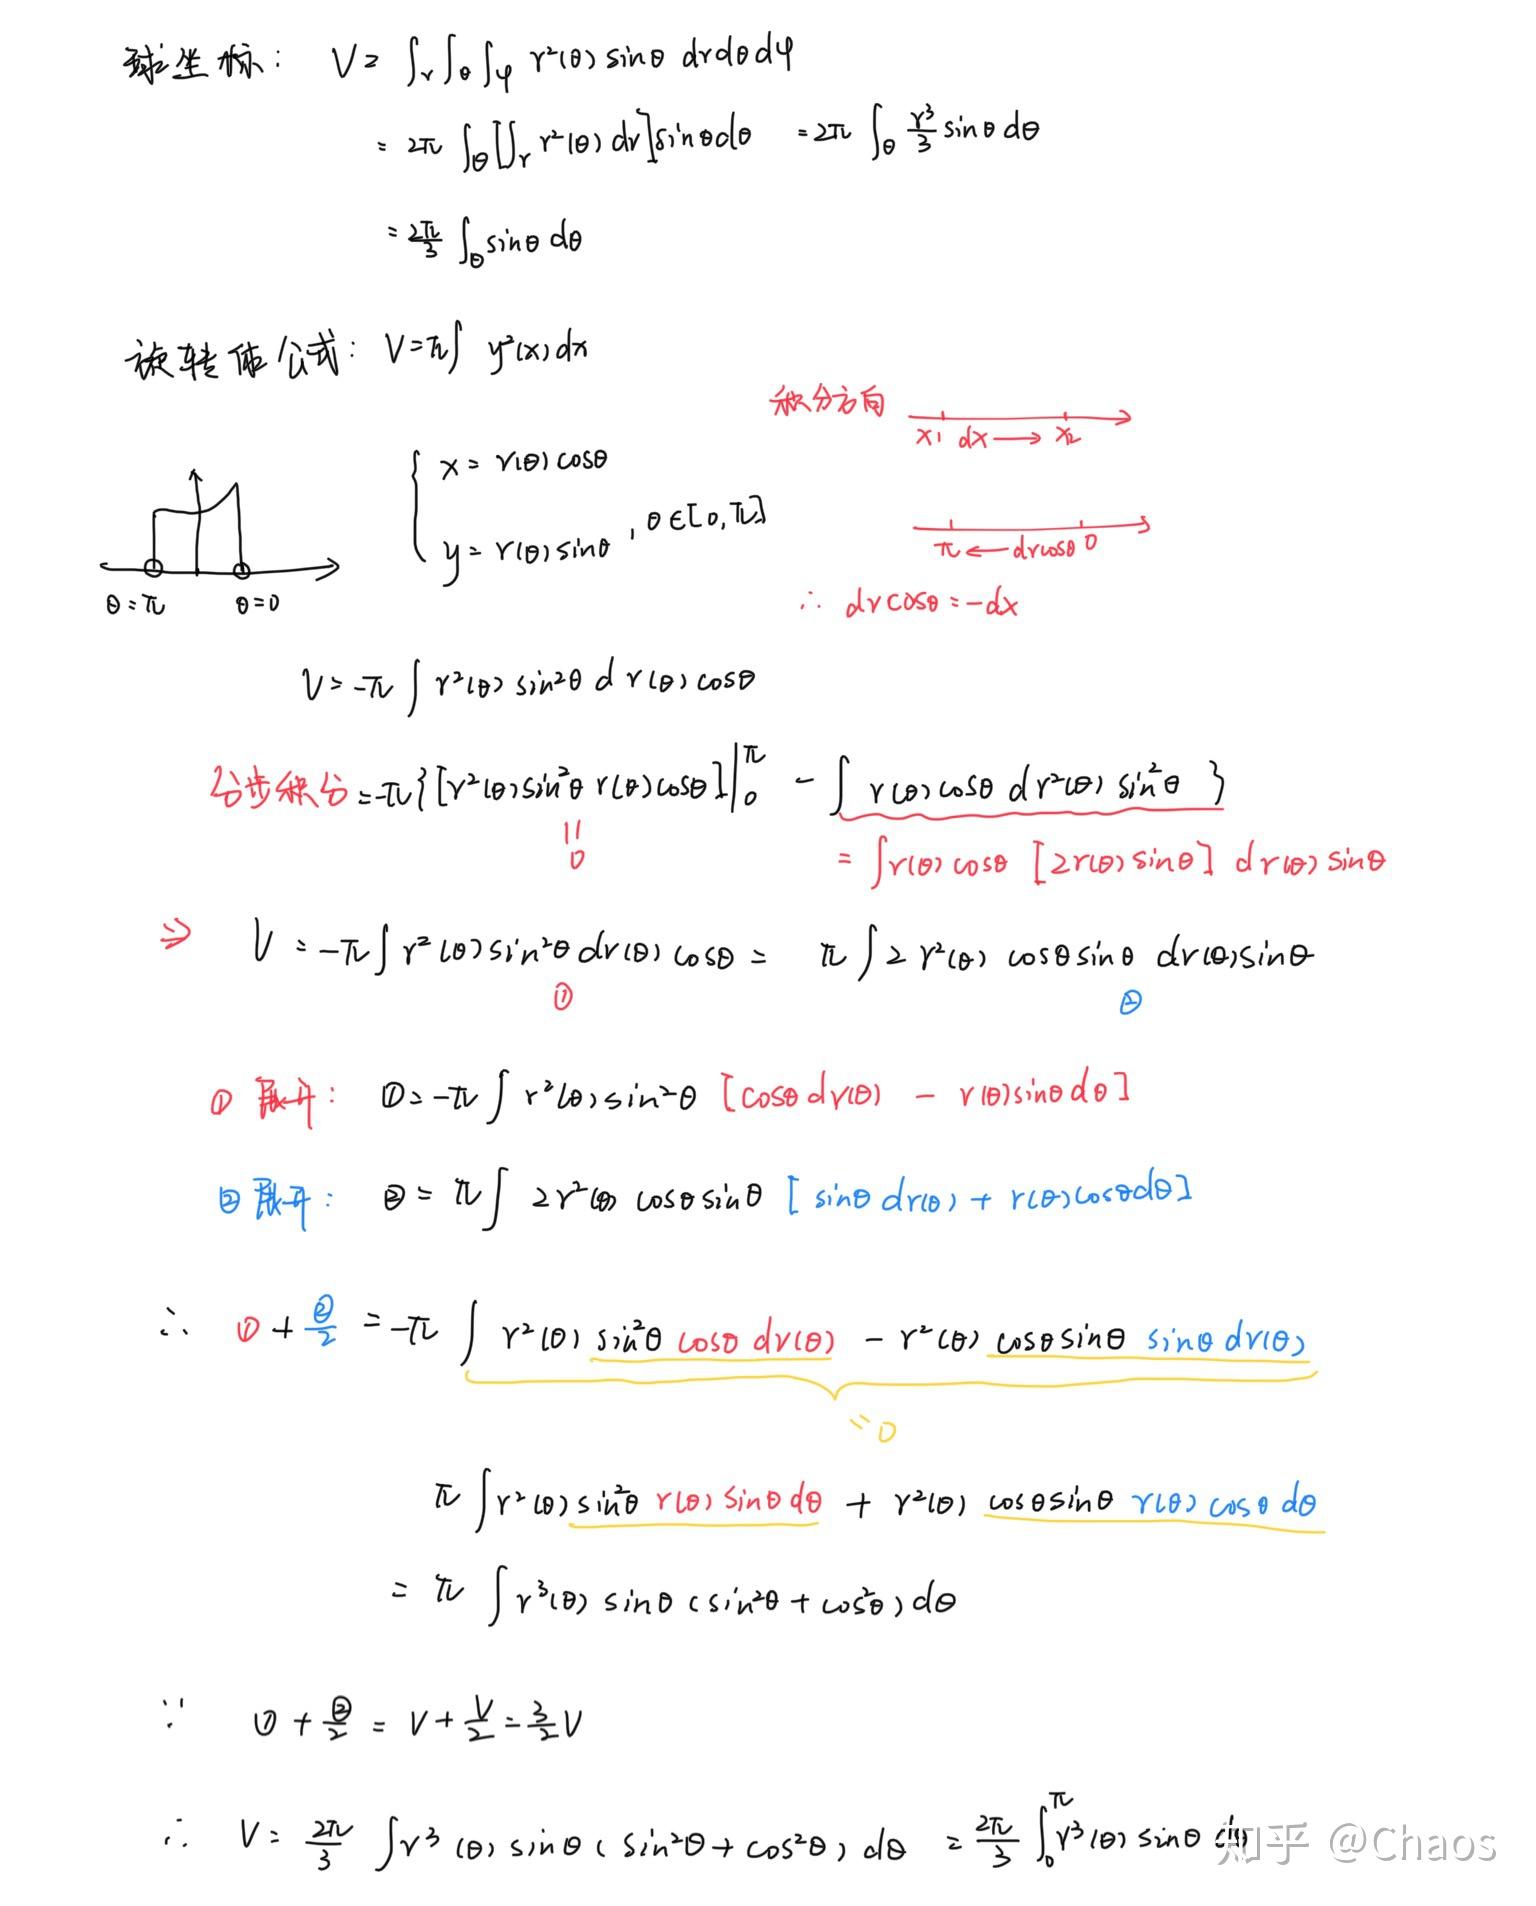 球坐标: V = ∫_r ∫_θ ∫_φ r²(θ) sinθ dr dθ dφ
= 2π ∫_θ [∫_r r²(θ) dr] sinθ dθ = 2π ∫_θ r³/3 sinθ dθ
= 2π/3 ∫_θ sinθ dθ
旋转体公式: V = π∫ y²(x) dx
积分方向
x₁ dx → x₂
{ x = r(θ) cosθ
y = r(θ) sinθ , θ∈[0, π]
π ← drcosθ 0
θ = π θ = 0
∴ drcosθ = -dx
V = -π ∫ r²(θ) sin²θ d r(θ) cosθ
分步积分 = -π { [r²(θ) sin²θ r(θ) cosθ] |₀^π - ∫ r(θ) cosθ d r²(θ) sin²θ }
|| 0
= ∫ r(θ) cosθ [2r(θ) sinθ] d r(θ) sinθ
⇒ V = -π ∫ r²(θ) sin²θ dr(θ) cosθ = π ∫ 2 r²(θ) cosθ sinθ dr(θ) sinθ
① ②
① 展开: ① = -π ∫ r²(θ) sin²θ [cosθ dr(θ) - r(θ) sinθ dθ]
② 展开: ② = π ∫ 2r²(θ) cosθ sinθ [sinθ dr(θ) + r(θ) cosθ dθ]
∴ ① + ②/2 = -π ∫ r²(θ) sin²θ cosθ dr(θ) - r²(θ) cosθ sinθ sinθ dr(θ)
= 0
π ∫ r²(θ) sin²θ r(θ) sinθ dθ + r²(θ) cosθ sinθ r(θ) cosθ dθ
= π ∫ r³(θ) sinθ (sin²θ + cos²θ) dθ
∵ ① + ②/2 = V + V/2 = 3/2 V
∴ V = 2π/3 ∫ r³(θ) sinθ (sin²θ + cos²θ) dθ = 2π/3 ∫₀^π r³(θ) sinθ dθ
知乎 @Chaos